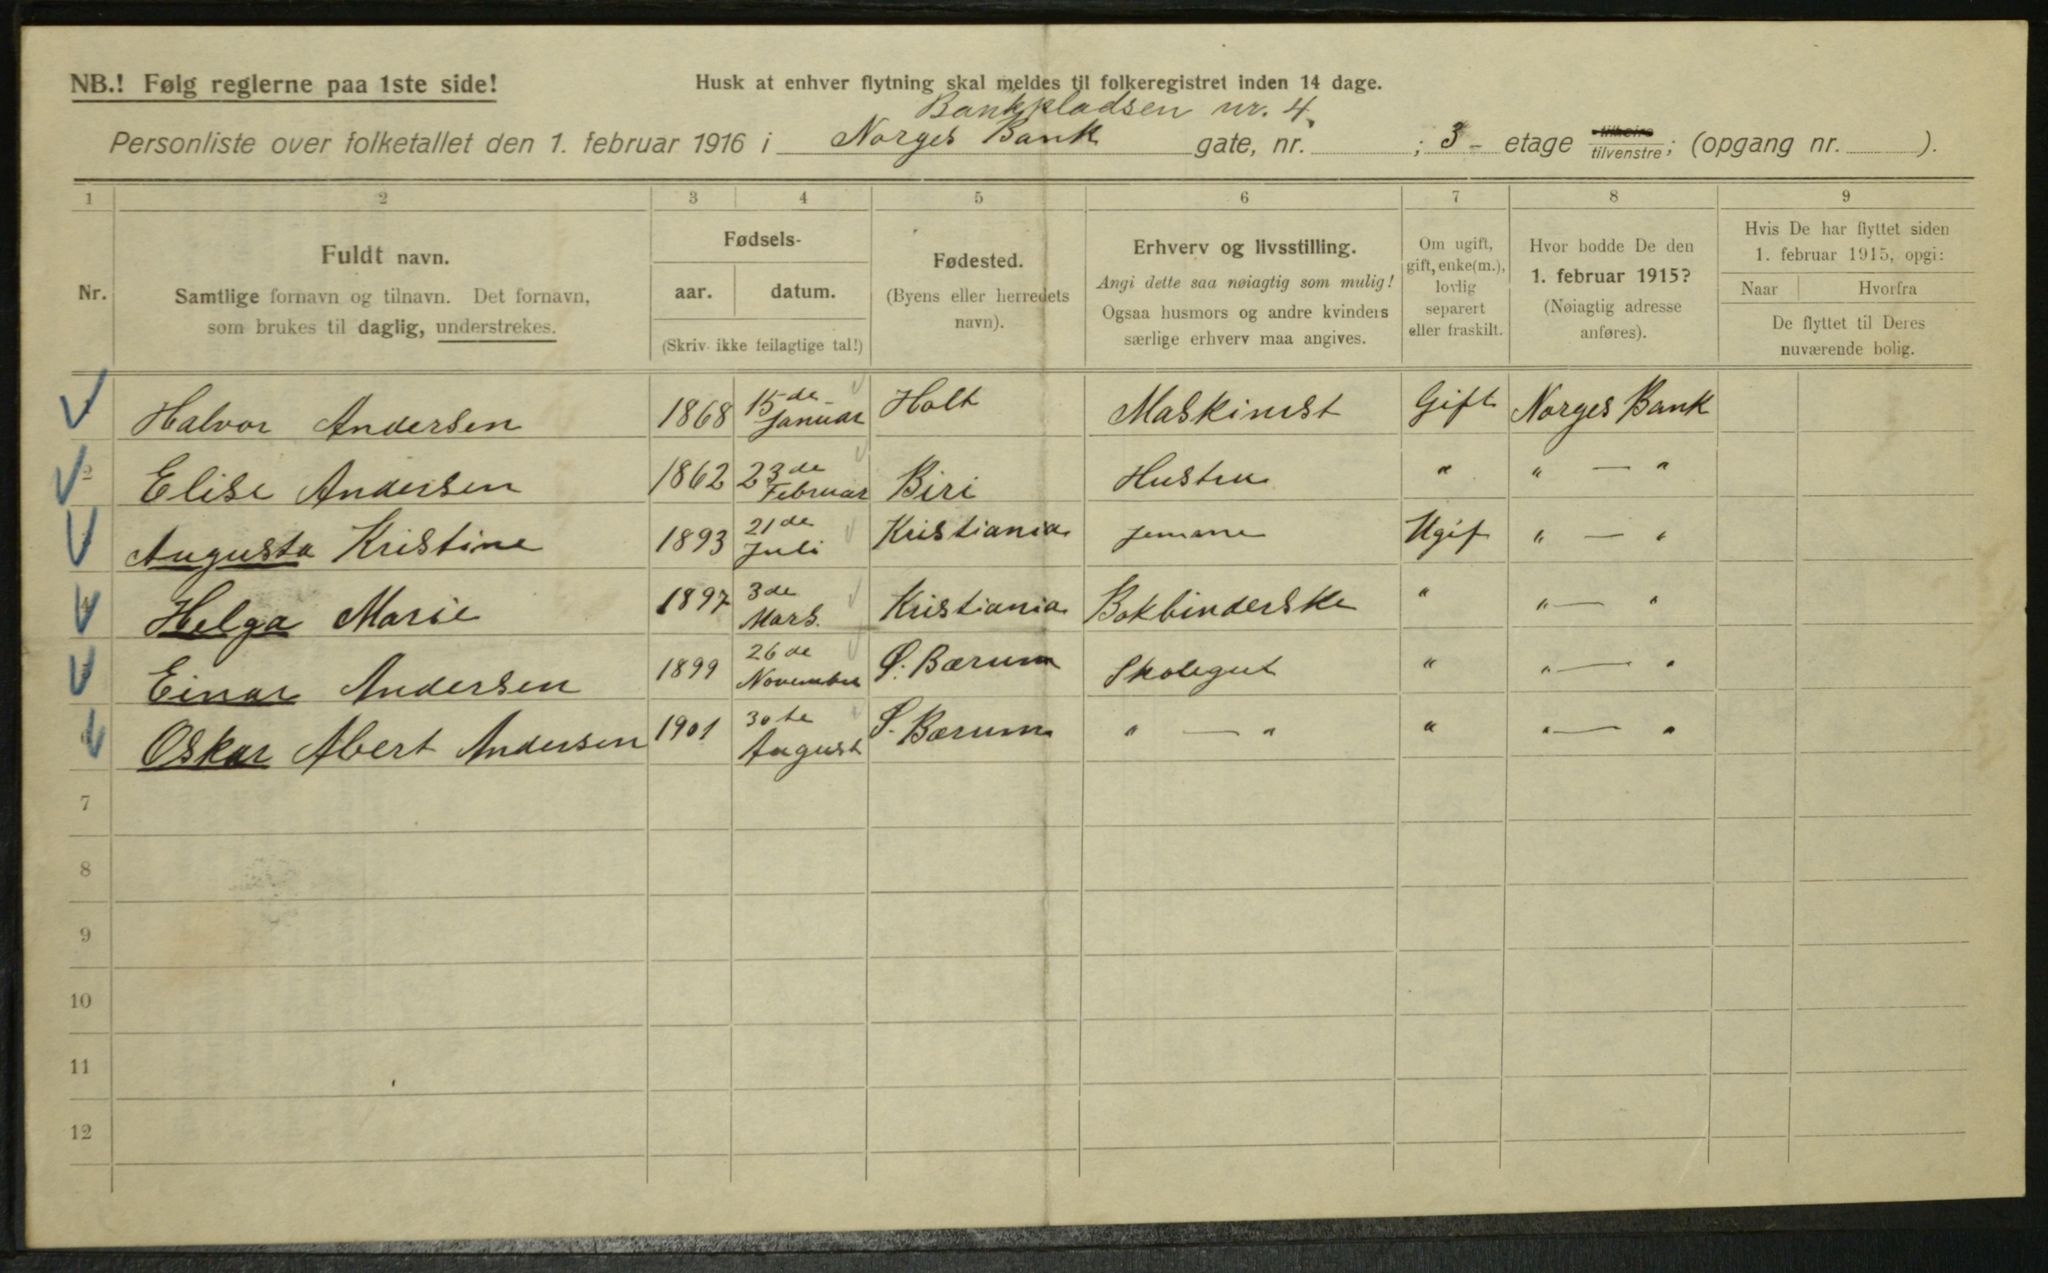 NB.! Følg reglerne paa 1ste side!
Husk at enhver flytning skal meldes til folkeregistret inden 14 dage.
Bankpladsen nr. 4.
Personliste over folketallet den 1. februar 1916 i Norges Bank gate, nr. ; 3- etage tilhøire tilvenstre; (opgang nr. ).
1 2 3 4 5 6 7 8 9
Nr.
Fuldt navn.
Samtlige fornavn og tilnavn. Det fornavn,
som brukes til daglig, understrekes.
Fødsels-
aar. datum.
(Skriv ikke feilagtige tal!)
Fødested.
(Byens eller herredets
navn).
Erhverv og livsstilling.
Angi dette saa nøiagtig som mulig!
Ogsaa husmors og andre kvinders
særlige erhverv maa angives.
Om ugift,
gift, enke(m.),
lovlig
separert
eller fraskilt.
Hvor bodde De den
1. februar 1915?
(Nøiagtig adresse
anføres).
Hvis De har flyttet siden
1. februar 1915, opgi:
Naar Hvorfra
De flyttet til Deres
nuværende bolig.
Halvor Andersen 1868 15de- Januar Holt Maskinist Gift Norges Bank
2 Elise Andersen 1862 23de Februar Biri Hustru " " — "
Augusta Kristine 1893 21de Juli Kristiania Ugif " — "
4 Helga Marie 1897 3de Mars. Kristiania Bokbinderske " " — "
Einar Andersen 1899 26de November S. Bærum Skolegut " " — "
6 Oskar Albert Andersen 1901 30te August S. Bærum " — " " " — "
7
8
9
10
11
12